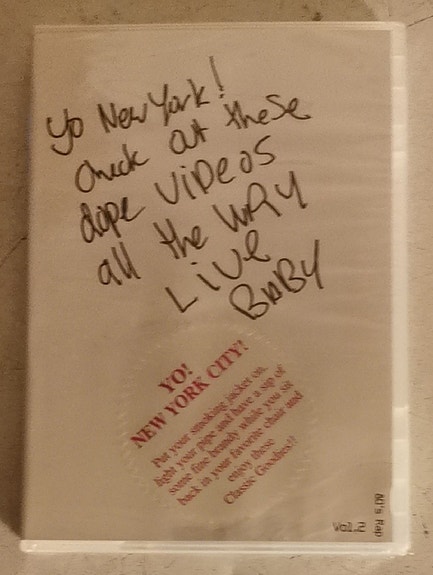 Yo New York!
Check out these
dope VIDeOS
all the WAY
LIVe
BABY
YO!
NEW YORK CITY!
Put your smoking jacket on,
light your pipe and have a sip of
some fine brandy while you sit
back in your favorite chair and
enjoy these
Classic Goodies!!
Vol.2
80's Rap